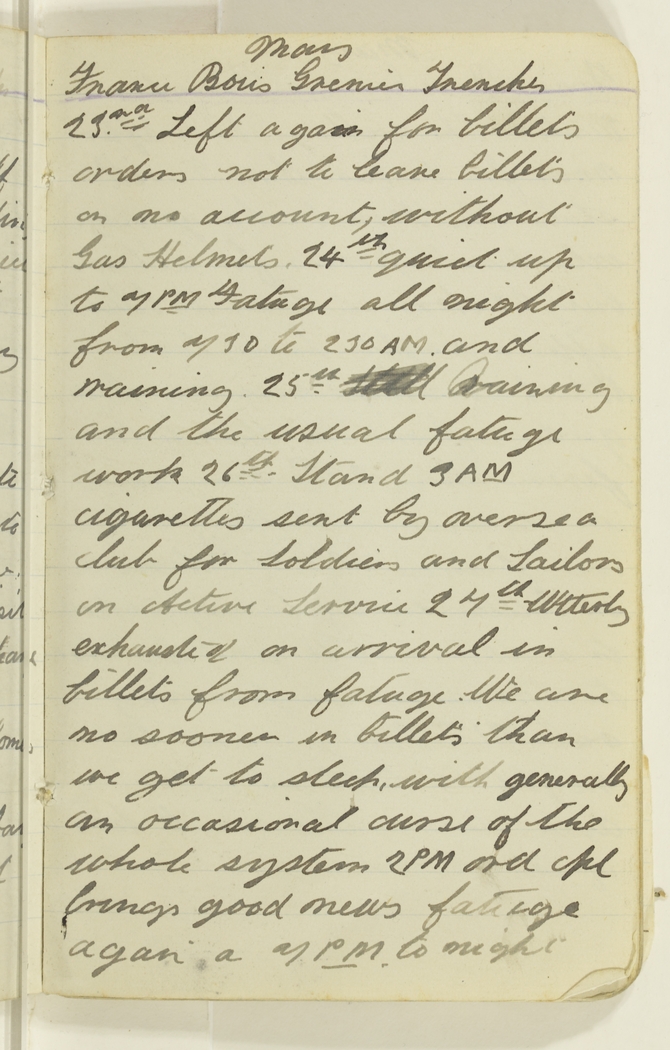 Mars
France Bois Grenier Trenches
23.nd Left again for billets
orders not to leave billets
on no account, without
Gas Helmets. 24th quiet up
to 7PM Fatuge all night
from 730 to 230AM. and
raining. 25th Raining
and the usual fatuge
work 26th. Stand 3AM
cigarettes sent by oversea
club for Soldiers and Sailors
on Active Service 27th Utterly
exhausted on arrival in
billets from fatuge. We are
no sooner in billets than
we get to sleep, with generally
an occasional curse of the
whole system 2PM ord cpl
brings good news fatuige
again a 7PM. to night